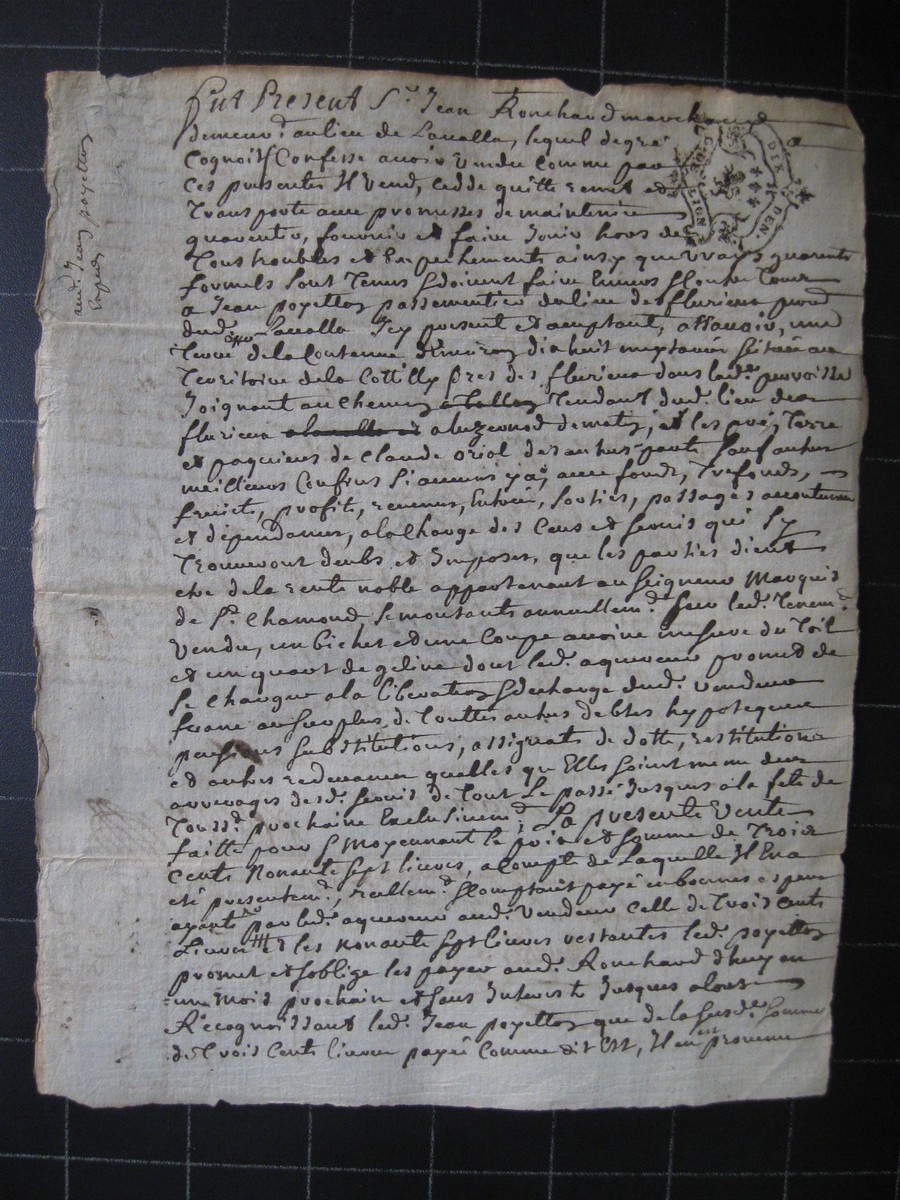 Fut Present Sr. Jean Ronchard marchand
demeurt. au lieu de Lavalla, lequel de gré
Cognoist Confesse avoir vendu comme par
ces presentes Il vend, cedde quitte remet et
Transporte avec promesses de maintenir
guarentir, fournir et faire Jouir hors de
Tous troubles et Empechements ainsy que vrays guarents
formels sont Tenus & doivent faire Envers & contre Tous
a Jean poyetton passementier du lieu de flurieu parr.
dud. Lavalla Icy present et acceptant, assavoir, une
Terre de la Contenue Environ dishuit mestairé scituée au
Territoire de la Cottilly pres des flurieu dans lad. parroisse
Joignant au chemin Tendant dud. lieu de
flurieu a luzernod de matz, et les pré, Terre
et paquiers de Claude oriol des autres parts Sauf autres
meilleurs Confins si aucuns y a, avec fonds, Trefonds,
fruict, profits, revenus, Entrées, Sorties, passages accoutumés
et dépendances, a la Charge des Cens et servis qui s'y
Trouveront deubs et Imposez, que les parties dient
etre de la rente noble appartenant au Seigneur Marquis
de St. Chamond, Se montants annuellemt. sur led. Tenemt.
vendu, un bichet et une Coupe avoine mesure du Toil
et un quart de geline dont led. aquereur promet de
Se Charger a la liberation & decharge dud. vendeur
franc au surplus de Touttes autres debtes hypoteques
pensions substitutions, assignats de dotte, restitutions
et autres redevances quelles qu'Elles soient meme des
arrerages desd. servis de Tout Le passé Jusques a la fete de
Touss. prochaine Exclusivemt.; La presente vente
faitte pour & moyennant le prix et somme de Trois
cents Nonante sept livres, a compte de Laquelle Il En a
été presentemt., reellemt. & comptant payé en bonnes especes
ayants par led. aquereur aud. vendeur celle de Trois cents
Livres Et les nonante sept livres restantes led. poyetton
promet et s'oblige les payer aud. Ronchard d'huy en
un mois prochain et sans Interests Jusques alors
Recognoissant led. Jean poyetton que de la susd. somme
de Trois Cents livres payée Comme dit Est, Il en provenu
aud. Jean poyetton
G. DE LION
DIX DEN.